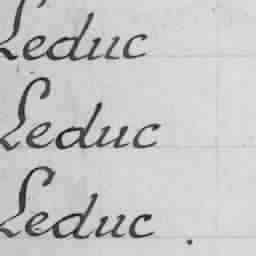 Leduc
Leduc
Leduc.